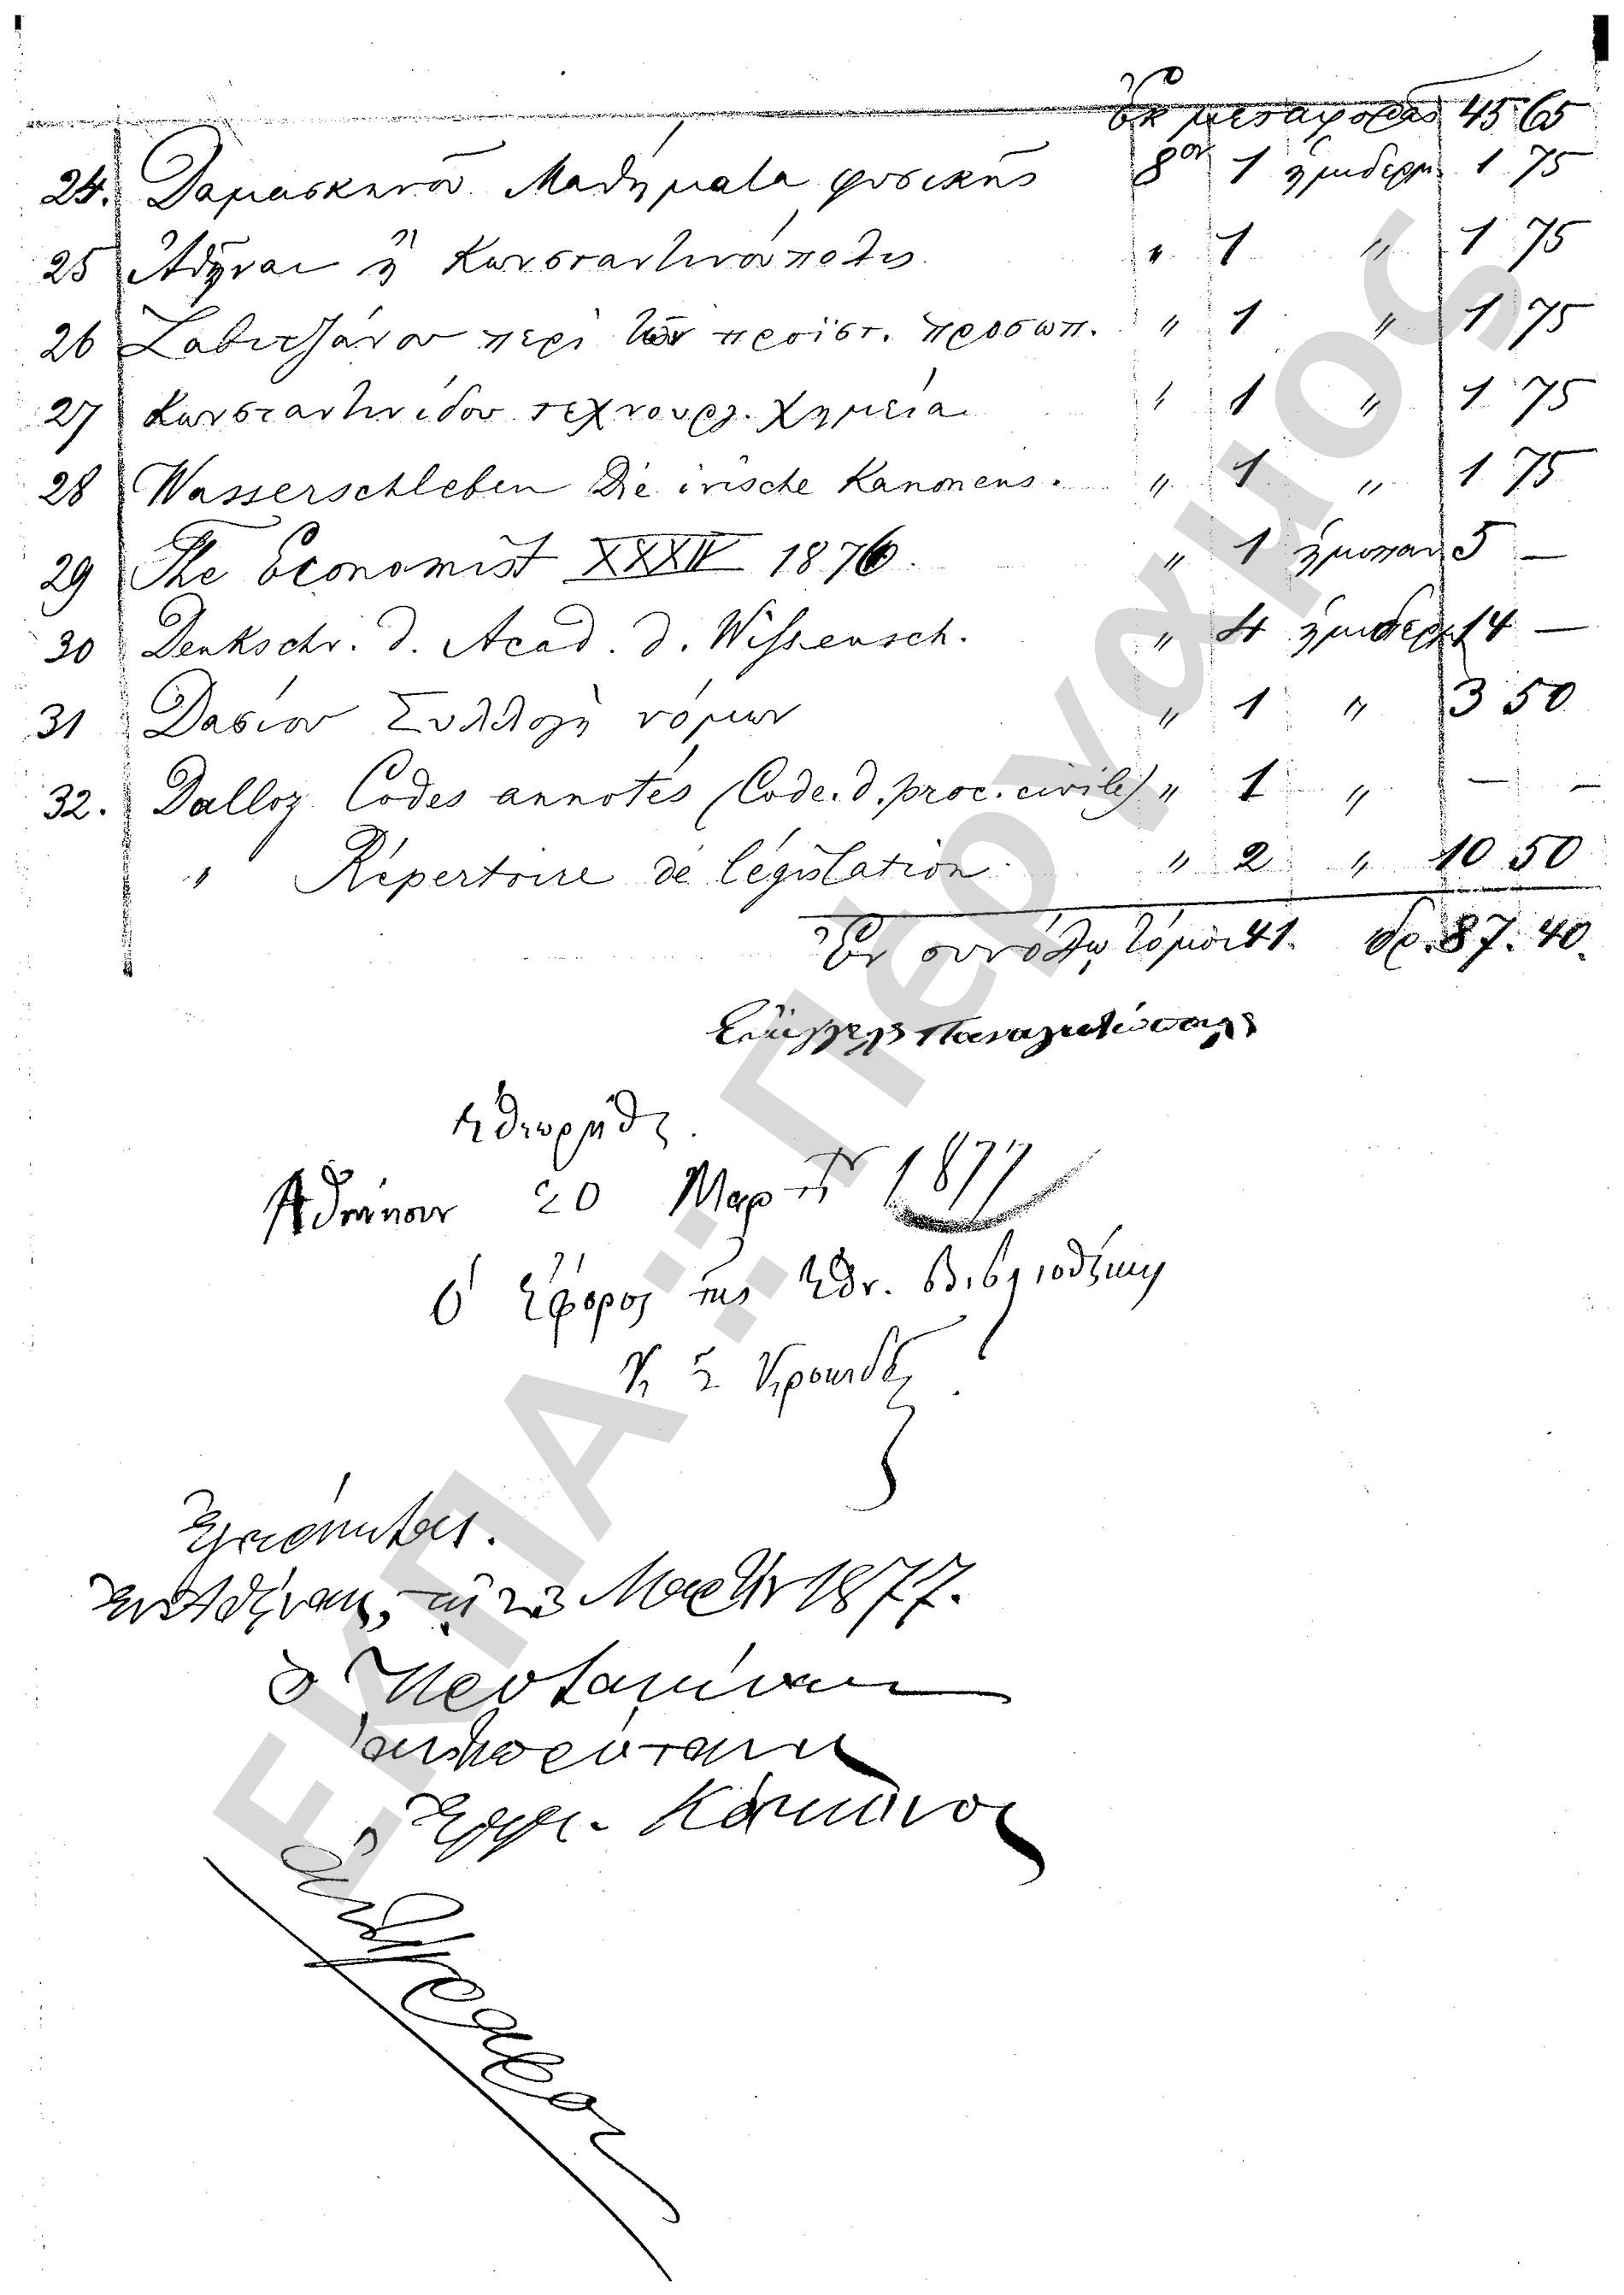 Ἐκ μεταφορᾶς 45 65
24. Δαμασκηνοῦ Μαθήματα φυσικῆς 8ον 1 ἡμιδερμ. 1 75
25 Ἀθῆναι ἢ Κωνσταντινούπολις " 1 " 1 75
26 Σαβιτζάνου περὶ τῶν προϊστ. προσωπ. " 1 " 1 75
27 Κωνσταντινίδου τεχνουργ. Χημεία " 1 " 1 75
28 Wasserschleben Die irische Kanonens. " 1 " 1 75
29 The Economist XXXIV 1876. " 1 ἡμιπαν 5 —
30 Denkschr. d. Acad. d. Wissensch. " 4 ἡμιδερμ 14 —
31 Δασίου Συλλογὴ νόμων " 1 " 3 50
32. Dalloz Codes annotés (Code. d. proc. civile) " 1 " — —
" Répertoire de législation " 2 " 10 50
Ἐν συνόλῳ τόμοι 41. δρ. 87. 40.
Παναγιωτόπουλος
Ἐθεωρήθη.
Ἀθήνησιν 20 Μαρτ 1877
Ὁ Ἔφορος τῆς Ἐθν. Βιβλιοθήκης
Ἐν Ἀθήναις, τῇ 23 Μαρτίου 1877.
Ὁ Πρύτανις
Κόκκινος
ΕΚΠΑ: Πέργαμος